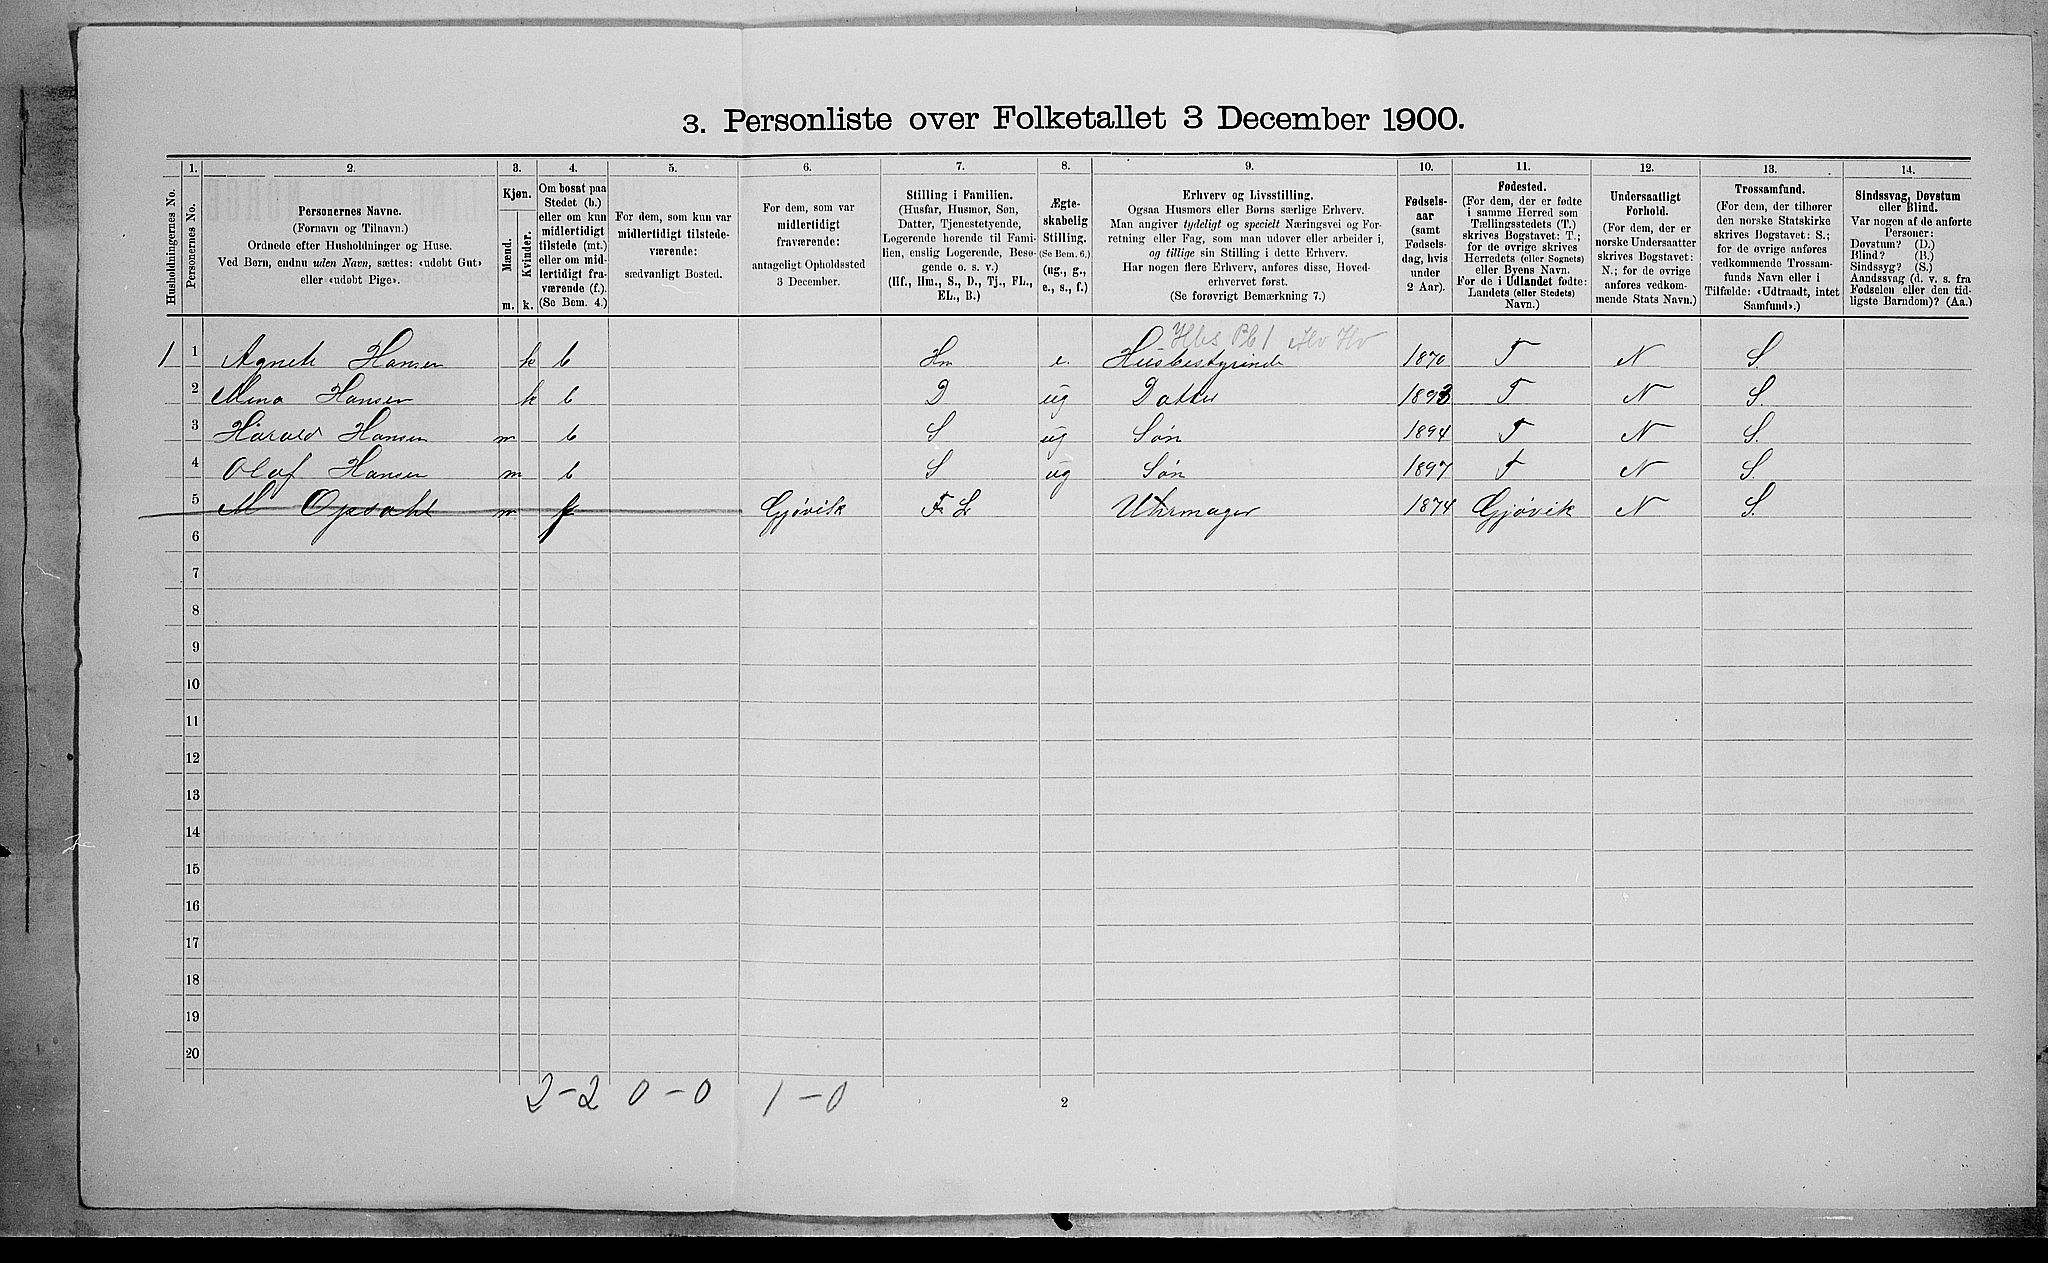 3. Personliste over Folketallet 3 December 1900.
Husholdningernes No.
1.
Personernes No.
2.
Personernes Navne.
(Fornavn og Tilnavn.)
Ordnede efter Husholdninger og Huse.
Ved Børn, endnu uden Navn, sættes: «udøbt Gut»
eller «udøbt Pige».
3.
Kjøn.
Mænd.
Kvinder.
m.
k.
4.
Om bosat paa
Stedet (b.)
eller om kun
midlertidigt
tilstede (mt.)
eller om mid-
lertidigt fra-
værende (f.).
(Se Bem. 4.)
5.
For dem, som kun var
midlertidigt tilstede-
værende:
sædvanligt Bosted.
6.
For dem, som var
midlertidigt
fraværende:
antageligt Opholdssted
3 December.
7.
Stilling i Familien.
(Husfar, Husmor, Søn,
Datter, Tjenestetyende,
Logerende hørende til Fami-
lien, enslig Logerende, Besø-
gende o. s. v.)
(Hf., Hm., S., D., Tj., FL.,
EL., B.)
8.
Ægte-
skabelig
Stilling.
(Se Bem. 6.)
(ug., g.,
e., s., f.)
9.
Erhverv og Livsstilling.
Ogsaa Husmors eller Børns særlige Erhverv.
Man angiver tydeligt og specielt Næringsvei og For-
retning eller Fag, som man udøver eller arbeider i,
og tillige sin Stilling i dette Erhverv.
Har nogen flere Erhverv, anføres disse, Hoved-
erhvervet først.
(Se forøvrigt Bemærkning 7.)
10.
Fødsels-
aar
(samt
Fødsels-
dag, hvis
under
2 Aar).
11.
Fødested.
(For dem, der er fødte
i samme Herred som
Tællingsstedets (T.)
skrives Bogstavet: T.;
for de øvrige skrives
Herredets (eller Sognets)
eller Byens Navn.
For de i Udlandet fødte:
Landets (eller Stedets)
Navn.)
12.
Undersaatligt
Forhold.
(For dem, der er
norske Undersaatter
skrives Bogstavet:
N.; for de øvrige
anføres vedkom-
mende Stats Navn.)
13.
Trossamfund.
(For dem, der tilhører
den norske Statskirke
skrives Bogstavet: S.;
for de øvrige anføres
vedkommende Trossam-
funds Navn eller i
Tilfælde: «Udtraadt, intet
Samfund».)
14.
Sindssvag, Døvstum
eller Blind.
Var nogen af de anførte
Personer:
Døvstum? (D.)
Blind? (B.)
Sindssyg? (S.)
Aandssvag (d. v. s. fra
Fødselen eller den tid-
ligste Barndom)? (Aa.)
1 1 Agnete Hansen k b Hm e. Husbestyrinde 1870 T N S.
2 Mina Hansen k b D ug Datter 1893 T. N S.
3 Harald Hansen m b S ug Søn 1894 T N S.
4 Olaf Hansen m b S ug Søn 1897 T N S.
5 M Opsahl m f Gjøvik F L Uhrmager 1874 Gjøvik N S.
6
7
8
9
10
11
12
13
14
15
16
17
18
19
20
2-2 0-0 1-0
2